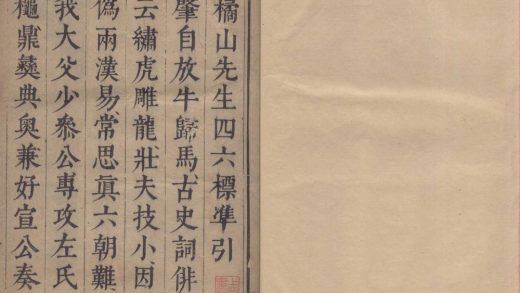 橘山先生四六標準引
肇自放牛歸馬、古史詞俳
云繡虎雕龍、壯夫技小、因
僞兩漢易常思眞六朝難、
我大父少叅公專攻左氏
櫑鼎彝典奧兼好宣公奏